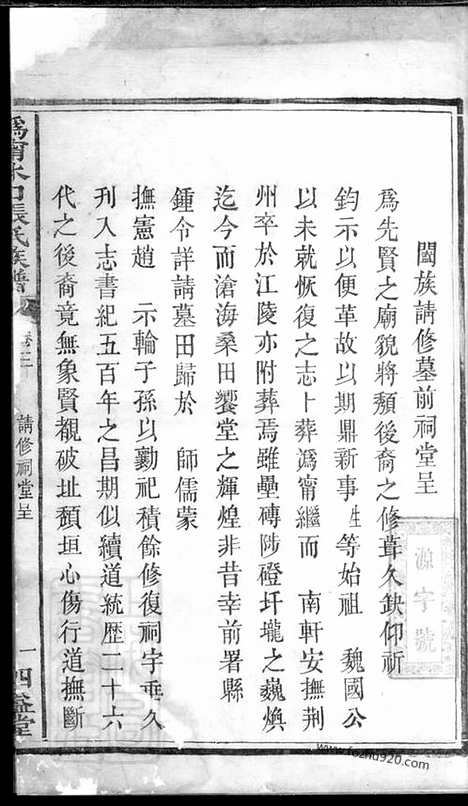 闔族請修墓前祠堂呈
為先賢之廟貌將頹後裔之修葺久缺仰祈
鈞示以便革故以期鼎新事生等始祖　魏國公
以未就恢復之志卜葬溈甯繼而　南軒安撫荆
州卒於江陵亦附葬焉雖壘磚陟磴圩壠之巍煥
迄今而滄海桑田饗堂之輝煌非昔幸前署縣
鍾令詳請墓田歸於　師儒蒙
撫憲趙　示輪子孫以勷祀積餘修復祠宇垂久
刊入志書紀五百年之昌期似續道統歷二十六
代之後裔竟無象賢覩破址頹垣心傷行道撫斷
溈甯水口張氏族譜
卷三
請修祠堂呈
一
四益堂
源字號
www.fozhu920.com